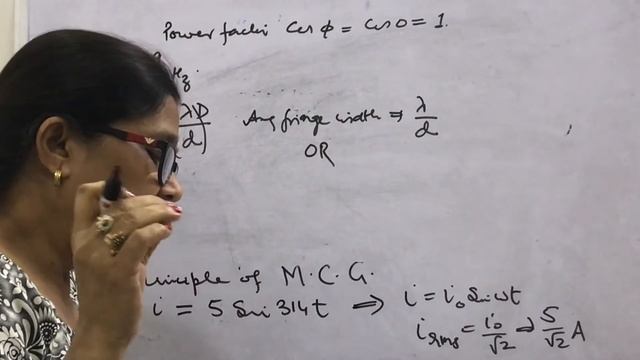 Power factor Cos φ = Cos 0 = 1.
Hz.
λD/d Ang fringe width ⇒ λ/d
OR
rinciple of M.C.G.
i = 5 Sin 314t ⇒ i = i₀ Sin ωt
i rms = i₀/√2 ⇒ 5/√2 A